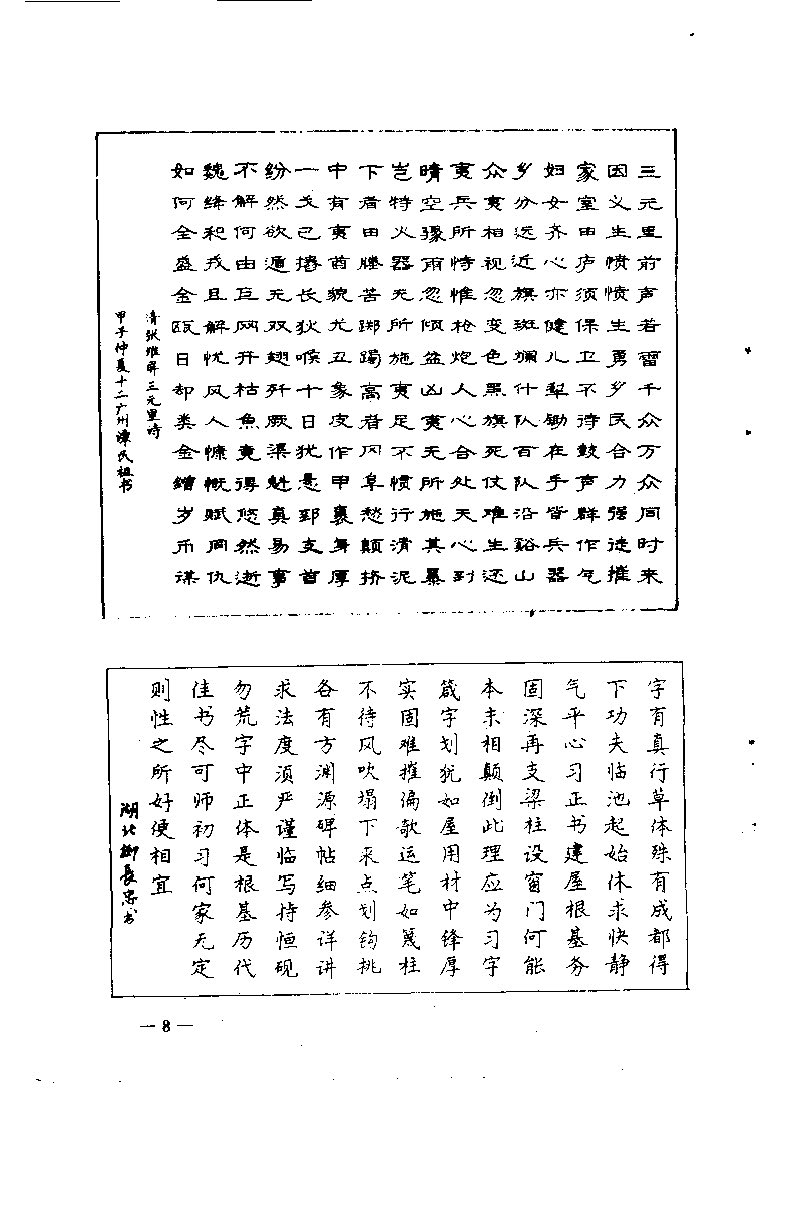 三元里前声若雷千众万众同时来
因义生愤愤生勇乡民合力强徒摧
家室田庐须保卫不待鼓声群作气
妇女齐心亦健儿犁锄在手皆兵器
乡分远近旗斑斓什队百队沿谿山
众夷相视忽变色黑旗死仗难生还
夷兵所恃惟枪炮人心合处天心到
晴空骤雨忽倾盆凶夷无所施其暴
岂特火器无所施夷足不惯行滑泥
下者田塍苦踯躅高者冈阜愁颠挤
中有夷酋貌尤丑象皮作甲裹身厚
一戈已摏长狄喉十日犹悬郅支首
纷然欲遁无双翅歼厥渠魁真易事
不解何由巨网开枯鱼竟得悠然逝
魏绛和戎且解忧风人慷慨赋同仇
如何全盛金瓯日却类金缯岁币谋
清张维屏三元里诗
甲子仲夏十二广州谭氏祖书
字有真行草体殊有成都得
下功夫临池起始休求快静
气平心习正书建屋根基务
固深再支梁柱设窗门何能
本末相颠倒此理应为习字
箴字划犹如屋用材中锋厚
实固难摧偏欹运笔如篾柱
不待风吹塌下来点划钩挑
各有方渊源碑帖细参详讲
求法度须严谨临写持恒砚
勿荒字中正体是根基历代
佳书尽可师初习何家无定
则性之所好便相宜
湖北柳长忠书
— 8 —